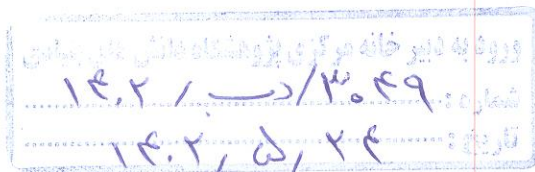 ورود به دبیر خانه مرکزی پژوهشگاه دانش های بنیادی
شماره : ۱۴۰۲ / دب / ۳۰۴۹
تاریخ : ۱۴۰۲ , ۵ , ۲۴